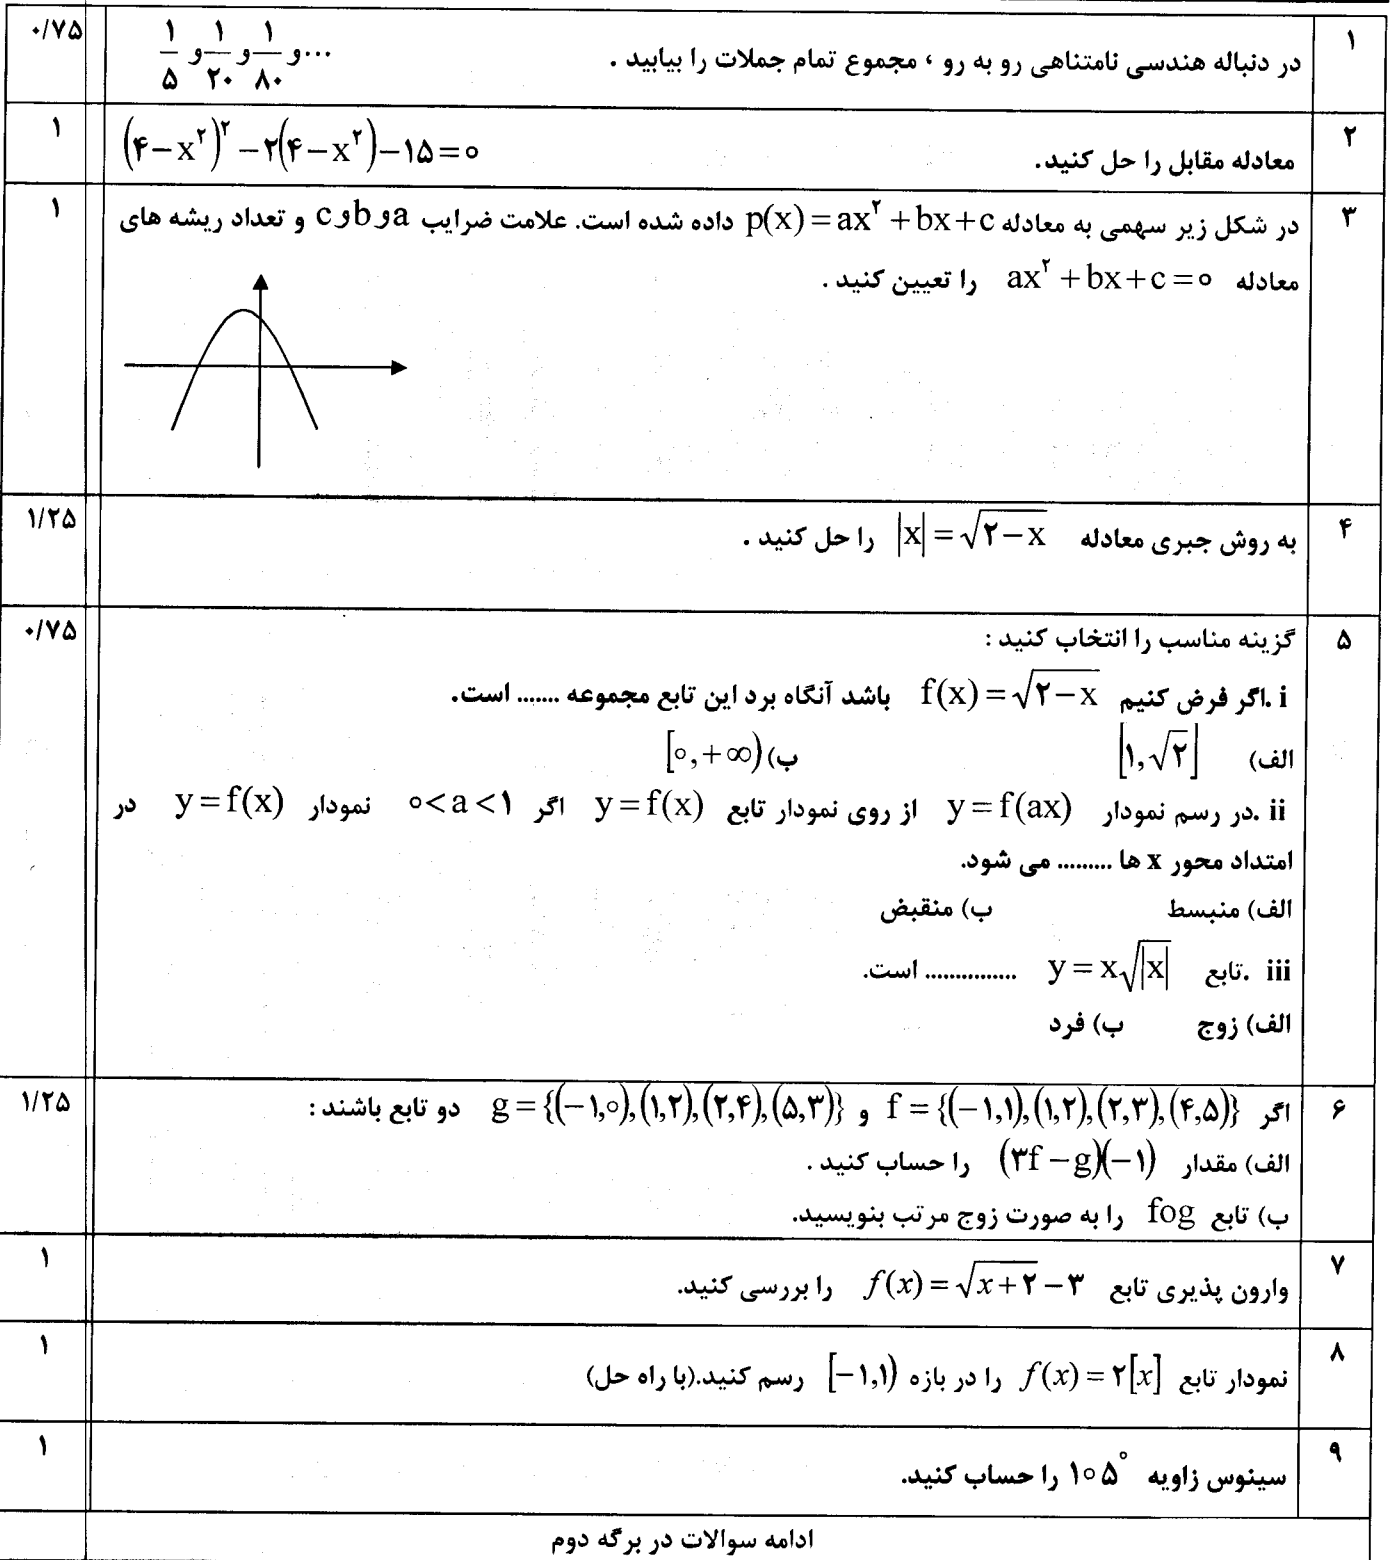 ۱ در دنباله هندسی نامتناهی رو به رو ، مجموع تمام جملات را بیابید . ۱/۵ و ۱/۲۰ و ۱/۸۰ و... ۰/۷۵
۲ معادله مقابل را حل کنید. (۴-x^۲)^۲ -۲(۴-x^۲)-۱۵=۰ ۱
۳ در شکل زیر سهمی به معادله p(x)=ax^۲+bx+c داده شده است. علامت ضرایب a و b و c و تعداد ریشه های ۱
معادله ax^۲+bx+c=۰ را تعیین کنید .
۴ به روش جبری معادله |x|=√(۲-x) را حل کنید . ۱/۲۵
۵ گزینه مناسب را انتخاب کنید : ۰/۷۵
i .اگر فرض کنیم f(x)=√(۲-x) باشد آنگاه برد این تابع مجموعه ....... است.
الف) [۱,√۲] ب) [۰,+∞)
ii .در رسم نمودار y=f(ax) از روی نمودار تابع y=f(x) اگر ۰<a<۱ نمودار y=f(x) در
امتداد محور x ها ......... می شود.
الف) منبسط ب) منقبض
iii .تابع y=x√|x| ............... است.
الف) زوج ب) فرد
۶ اگر f={(-۱,۱),(۱,۲),(۲,۳),(۴,۵)} و g={(-۱,۰),(۱,۲),(۲,۴),(۵,۳)} دو تابع باشند : ۱/۲۵
الف) مقدار (۳f-g)(-۱) را حساب کنید .
ب) تابع fog را به صورت زوج مرتب بنویسید.
۷ وارون پذیری تابع f(x)=√(x+۲)-۳ را بررسی کنید. ۱
۸ نمودار تابع f(x)=۲[x] را در بازه [-۱,۱) رسم کنید.(با راه حل) ۱
۹ سینوس زاویه ۱۰۵° را حساب کنید. ۱
ادامه سوالات در برگه دوم